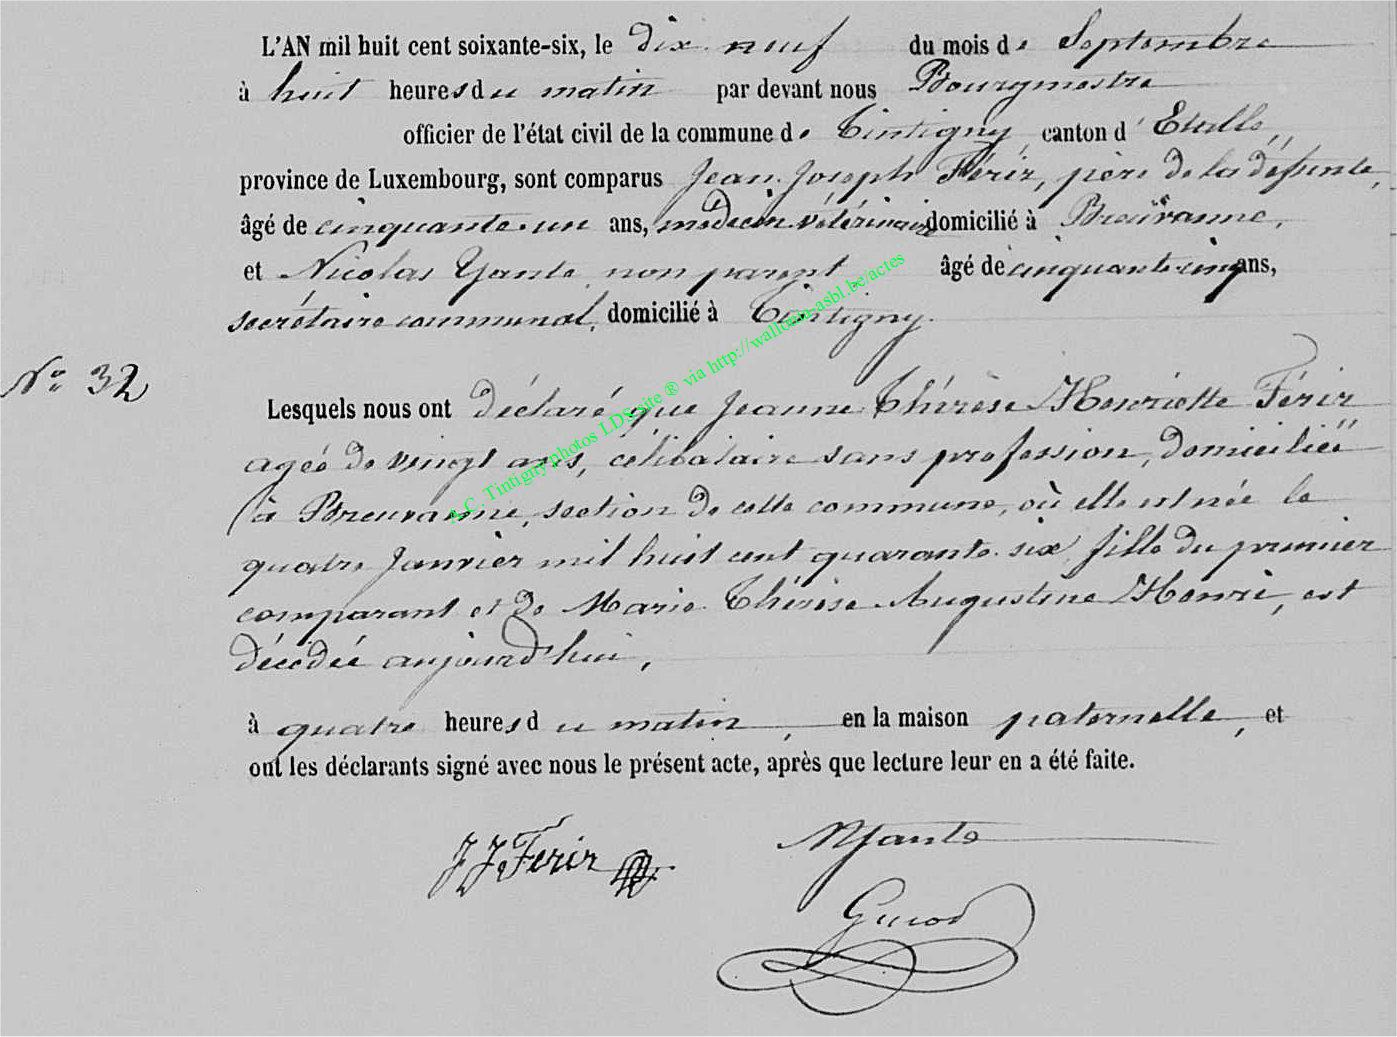 L'AN mil huit cent soixante-six, le dix neuf du mois de Septembre
à huit heures du matin par devant nous Bourgmestre
officier de l'état civil de la commune de Tintigny, canton d'Etalle,
province de Luxembourg, sont comparus Jean Joseph Férir, père de la défunte,
âgé de cinquante-un ans, médecin vétérinaire domicilié à Breuvanne,
et Nicolas Yante, non parent, âgé de cinquante cinq ans,
secrétaire communal, domicilié à Tintigny.
N° 32
Lesquels nous ont déclaré que Jeanne Thérèse Henriette Férir
agée de vingt ans, célibataire sans profession, domiciliée
à Breuvanne, section de cette commune, où elle est née le
quatre Janvier mil huit cent quarante six, fille du premier
comparant et de Marie Thérèse Augustine Henri, est
décédée aujourd'hui,
à quatre heures du matin, en la maison paternelle, et
ont les déclarants signé avec nous le présent acte, après que lecture leur en a été faite.
JJ Férir NYante
A.C. Tintigny photos LDS site ® via http://wallonia-asbl.be/actes